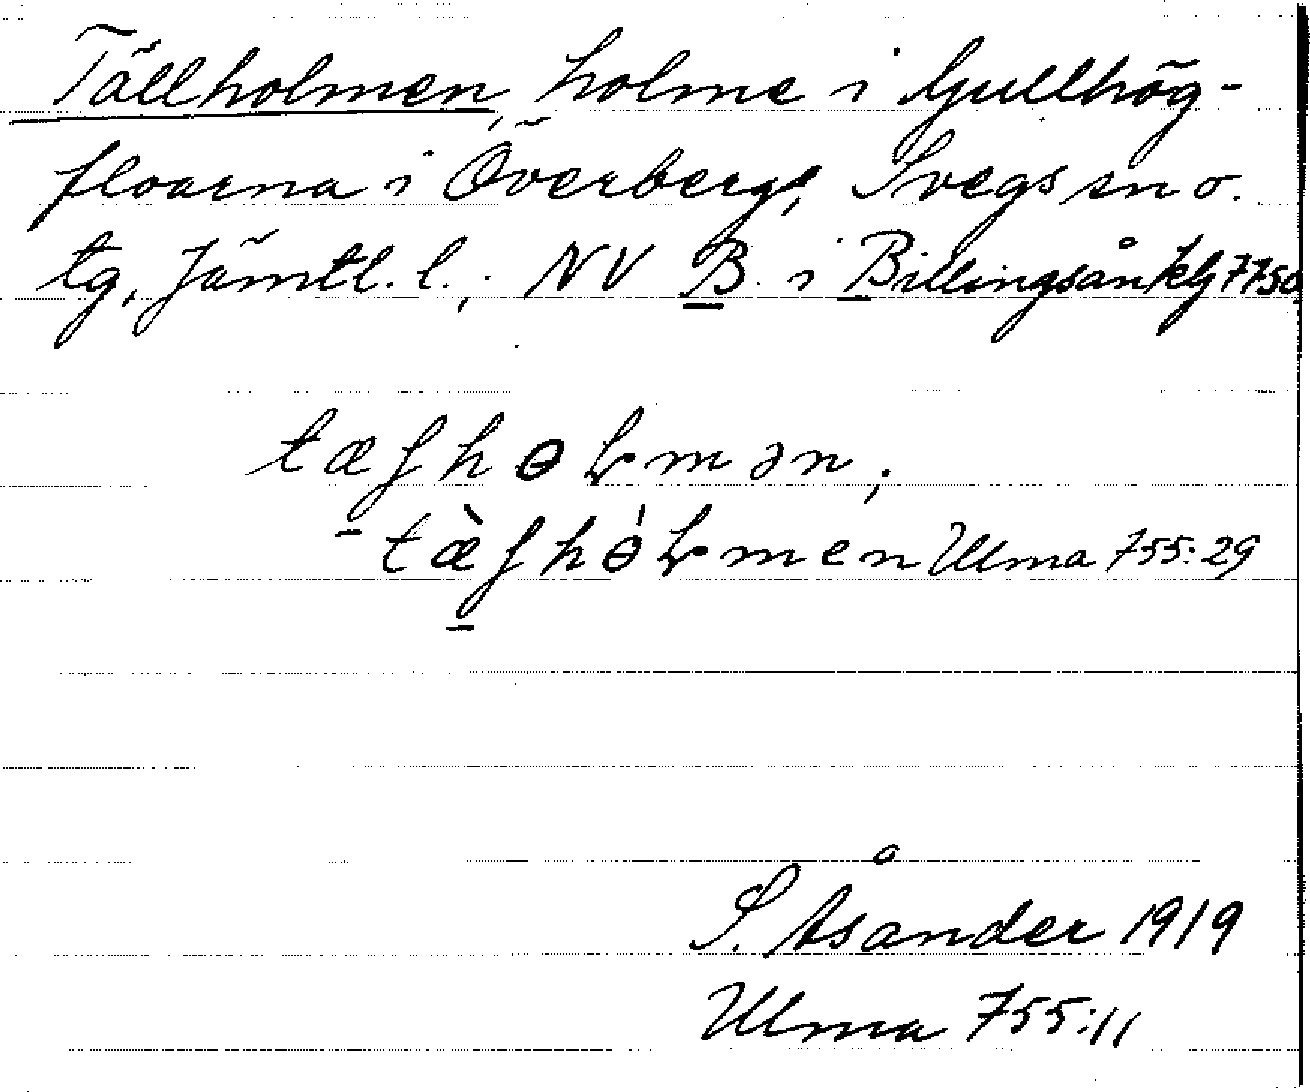 Tällholmen, holme i Gullhög-
floarna i Överberg, Svegs sn o.
tg, Jämtl. l.; NV B. i Billingsån klj 7750
tæʃhɵɽmən,
tæ̀ʃhɵ́ɽmen Ulma 755:29
S. Åsander 1919
Ulma 755:11